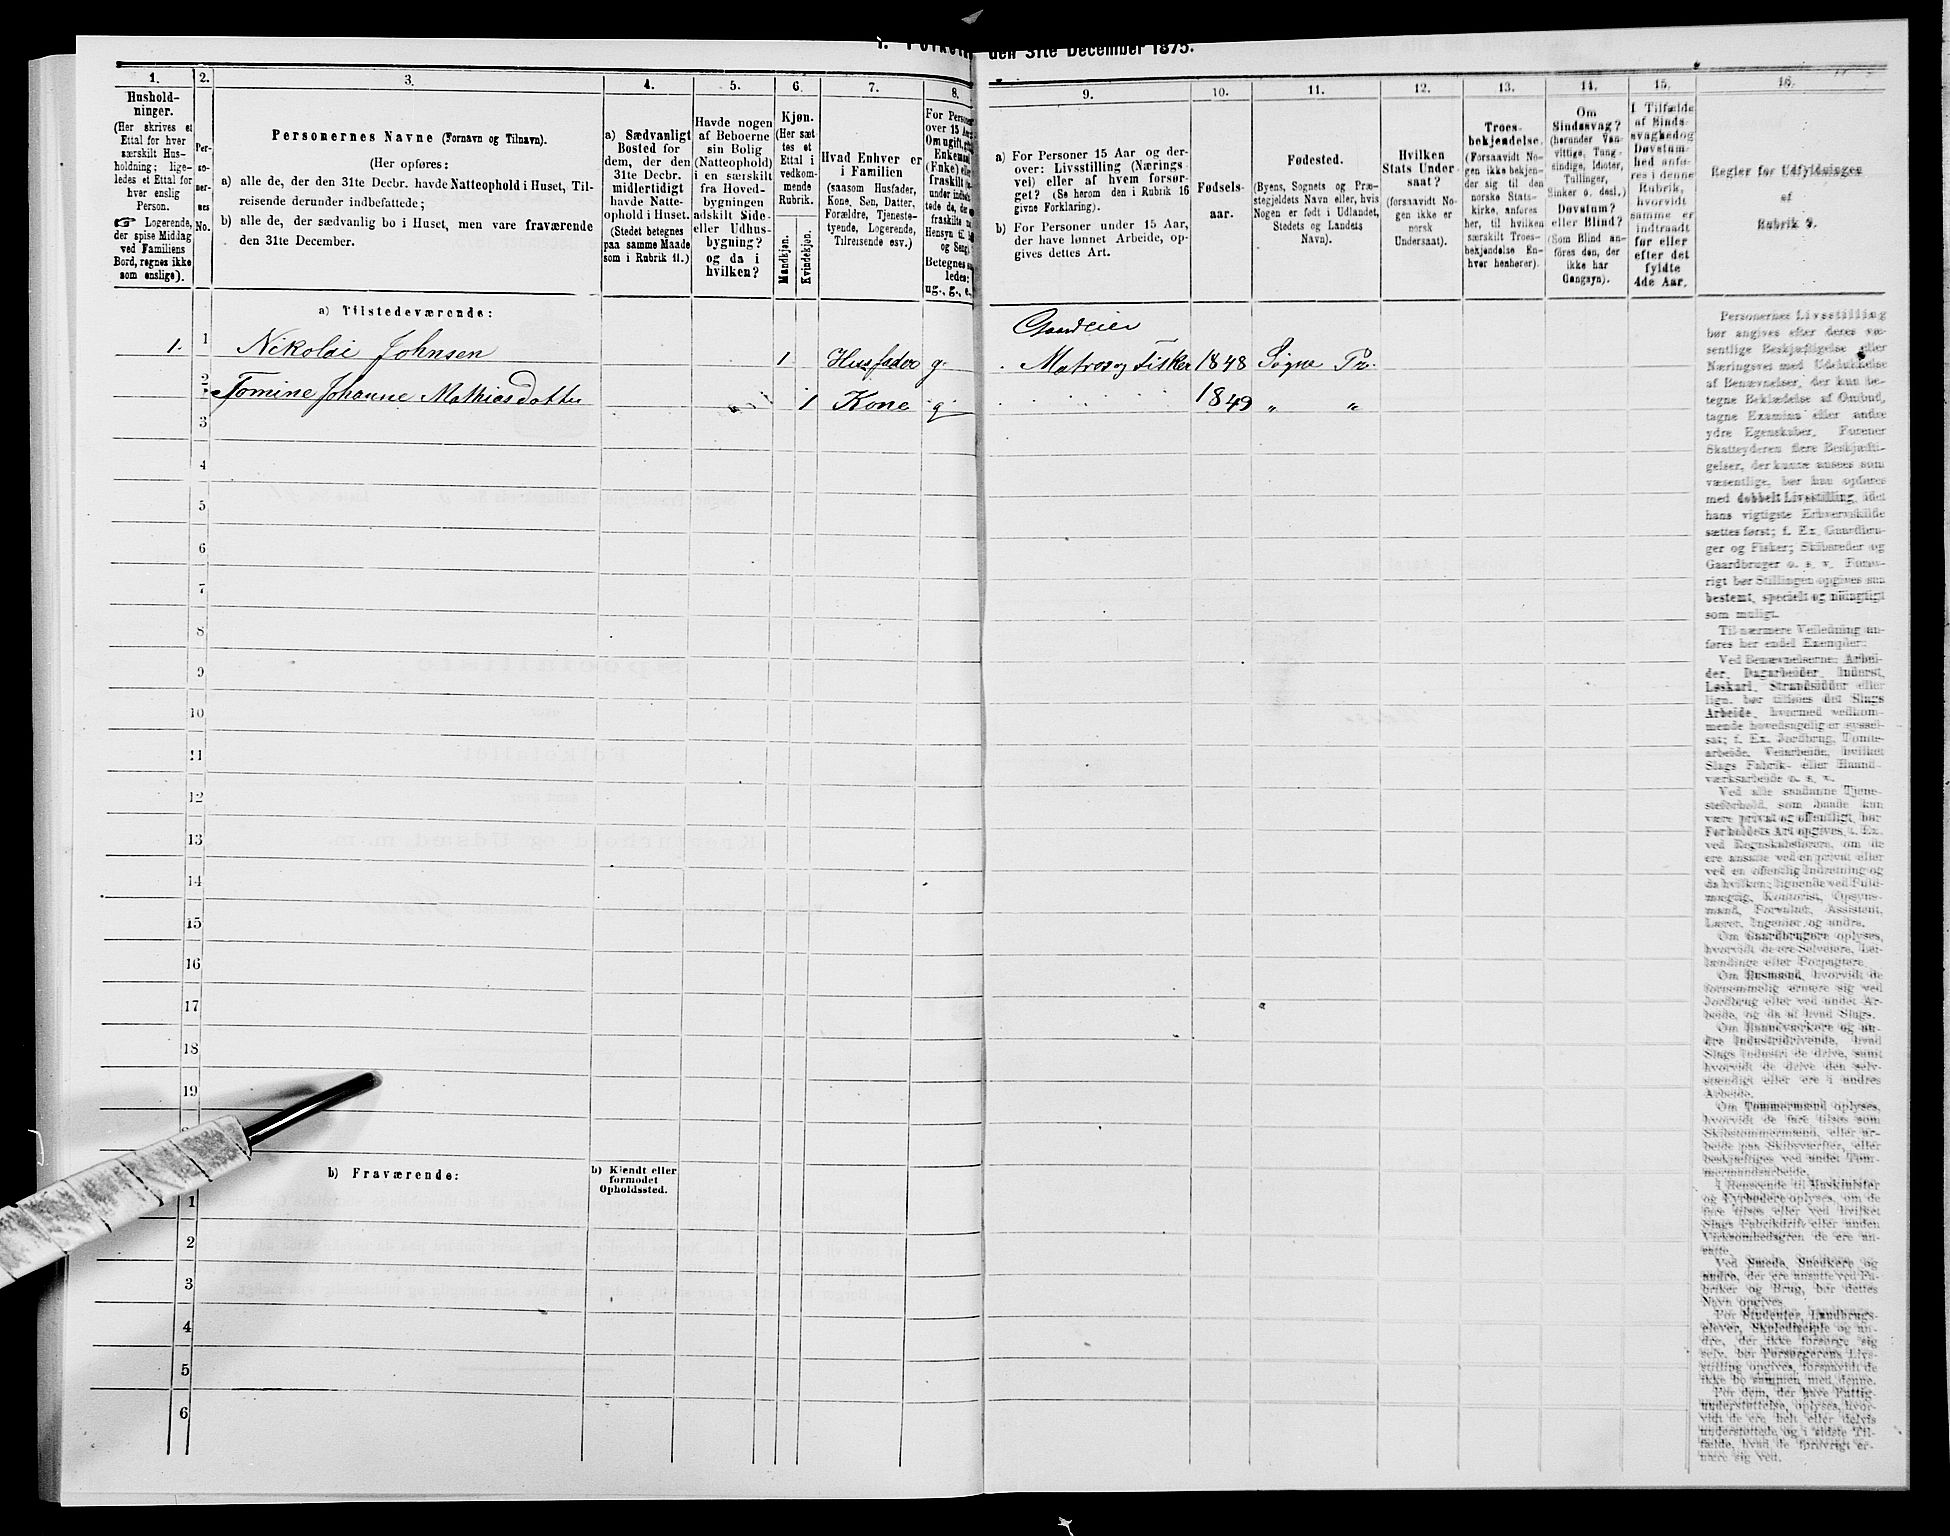 den 31te December 1875.
1. 2. 3. 4. 5. 6. 7. 8. 9. 10. 11. 12. 13. 14. 15. 16.
Hushold-
ninger.
(Her skrives et
Ettal for hver
særskilt Hus-
holdning; lige-
ledes et Ettal for
hver enslig
Person.
☞ Logerende,
der spise Middag
ved Familiens
Bord, regnes ikke
som enslige).
Per-
so-
ner-
nes
No.
Personernes Navne (Fornavn og Tilnavn).
(Her opføres:
a) alle de, der den 31te Decbr. havde Natteophold i Huset, Til-
reisende derunder indbefattede;
b) alle de, der sædvanlig bo i Huset, men vare fraværende
den 31te December.
a) Sædvanligt
Bosted for
dem, der den
31te Decbr.
midlertidigt
havde Natte-
ophold i Huset.
(Stedet betegnes
paa samme Maade
som i Rubrik 11.)
Havde nogen
af Beboerne
sin Bolig
(Natteophold)
i en særskilt
fra Hoved-
bygningen
adskilt Side-
eller Udhus-
bygning?
og da i
hvilken?
Kjøn.
(Her sæt-
tes et
Ettal i
vedkom-
mende
Rubrik.
Mandkjøn.
Kvindekjøn.
Hvad Enhver er
i Familien
(saasom Husfader,
Kone, Søn, Datter,
Forældre, Tjeneste-
tyende, Logerende,
Tilreisende osv.)
For Personer
over 15 Aar
Om ugift, gift,
Enkemand
(Enke) eller
fraskilt
Betegnes saa-
ledes:
ug., g., e.,
a) For Personer 15 Aar og der-
over: Livsstilling (Nærings-
vei) eller af hvem forsør-
get? (Se herom den i Rubrik 16
givne Forklaring).
b) For Personer under 15 Aar,
der have lønnet Arbeide, op-
gives dettes Art.
Fødsels-
aar.
Fødested.
(Byens, Sognets og Præ-
stegjeldets Navn eller, hvis
Nogen er født i Udlandet,
Stedets og Landets
Navn).
Hvilken
Stats Under-
saat?
(forsaavidt No-
gen ikke er
norsk
Undersaat).
Troes-
bekjendelse.
(Forsaavidt No-
gen ikke bekjen-
der sig til den
norske Stats-
kirke, anføres
her, til hvilken
særskilt Troes-
bekjendelse En-
hver henhører).
Om
Sindssvag?
(herunder Van-
vittige, Tung-
sindige, Idioter,
Tullinger,
Sinker o. desl.)
Døvstum?
eller Blind?
(Som Blind an-
føres den, der
ikke har
Gangsyn).
I Tilfælde
af Sinds-
svaghed og
Døvstum-
hed anfø-
res i denne
Rubrik,
hvorvidt
samme er
indtraadt
før eller
efter det
fyldte
4de Aar.
Regler for Udfyldningen
af
Rubrik 9.
a) Tilstedeværende:
Gaardeier
1. 1 Nikolai Johnsen 1 Husfader g. Matros og Fisker 1848 Søgne Pr.
2 Tomine Johanne Mathiasdatter 1 Kone g 1849 " "
3
4
5
6
7
8
9
10
11
12
13
14
15
16
17
18
19
b) Fraværende:
b) Kjendt eller
formodet
Opholdssted.
1
2
3
4
5
6
Personernes Livsstilling
bør angives efter deres væ-
sentlige Beskjæftigelse eller
Næringsvei med Udelukkelse
af Benævnelser, der kun be-
tegne Beklædelse af Ombud,
tagne Examina eller andre
ydre Egenskaber. Forener
Skatteyderen flere Beskjæfti-
gelser, der kunne ansees som
væsentlige, bør han opføres
med dobbelt Livsstilling, idet
hans vigtigste Erhvervskilde
sættes først; f. Ex. Gaardbru-
ger og Fisker; Skibsreder og
Gaardbruger o. s. v. Forøv-
rigt bør Stillingen opgives saa
bestemt, specielt og nøiagtigt
som muligt.
Til nærmere Veiledning an-
føres her endel Exempler:
Ved Benævnelserne: Arbei-
der, Dagarbeider, Inderst,
Løskarl, Strandsidder eller
lign. bør tilføies det Slags
Arbeide, hvormed vedkom-
mende hovedsagelig er syssel-
sat; f. Ex. Jordbrug, Tomte-
arbeide, Veiarbeide, hvilket
Slags Fabrik- eller Haand-
værksarbeide o. s. v.
Ved alle saadanne Tjene-
steforhold, som baade kan
være privat og offentligt, bør
Forholdets Art opgives, f. Ex.
ved Regnskabsførere, om de
ere ansatte ved en privat eller
ved en offentlig Indretning og
da hvilken; lignende ved Fuld-
mægtig, Kontorist, Opsyns-
mand, Forvalter, Assistent,
Lærer, Ingeniør og andre.
Om Gaardbrugere oplyses,
hvorvidt de ere Selveiere, Lei-
lændinge eller Forpagtere.
Om Husmænd, hvorvidt de
fornemmelig ernære sig ved
Jordbrug eller ved andet Ar-
beide, og da af hvad Slags.
Om Haandværkere og an-
dre Industridrivende, hvad
Slags Industri de drive, samt
hvorvidt de drive den selv-
stændigt eller ere i andres
Arbeide.
Om Tømmermænd oplyses,
hvorvidt de fare tilsøs som
Skibstømmermænd, eller ar-
beide paa Skibsværfter, eller
beskjæftiges ved andet Tøm-
mermandsarbeide.
I Henseende til Maskinister
og Fyrbødere oplyses, om de
fare tilsøs eller ved hvilket
Slags Fabrikdrift eller anden
Virksomhedsgren de ere an-
satte.
Ved Smede, Snedkere og
andre, der ere ansatte ved Fa-
briker og Brug, bør dettes
Navn opgives.
For Studenter, Landbrugs-
elever, Skoledisciple og an-
dre, der ikke forsørge sig
selv, bør Forsørgerens Livs-
stilling opgives, forsaavidt de
ikke bo sammen med denne.
For dem, der have Fattig-
understøttelse, oplyses, hvor-
vidt de ere helt eller delvis
understøttede og i sidste Til-
fælde, hvad de forøvrigt er-
nære sig ved.